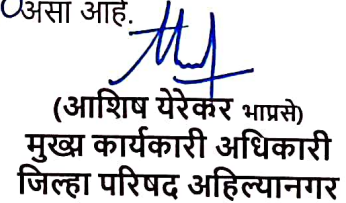 असा आहे.
(आशिष येरेकर भाप्रसे)
मुख्य कार्यकारी अधिकारी
जिल्हा परिषद अहिल्यानगर